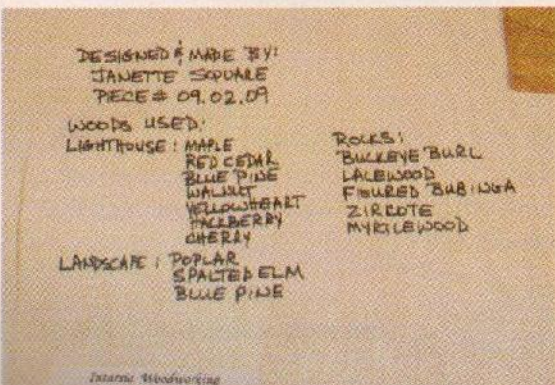 DESIGNED & MADE BY:
JANETTE SQUARE
PIECE # 09.02.09
WOODS USED:
LIGHTHOUSE: MAPLE
RED CEDAR
BLUE PINE
WALNUT
YELLOWHEART
HACKBERRY
CHERRY
LANDSCAPE: POPLAR
SPALTED ELM
BLUE PINE
ROCKS:
BUCKEYE BURL
LACEWOOD
FIGURED BUBINGA
ZIRCOTE
MYRTLEWOOD
Intarsia Woodworking